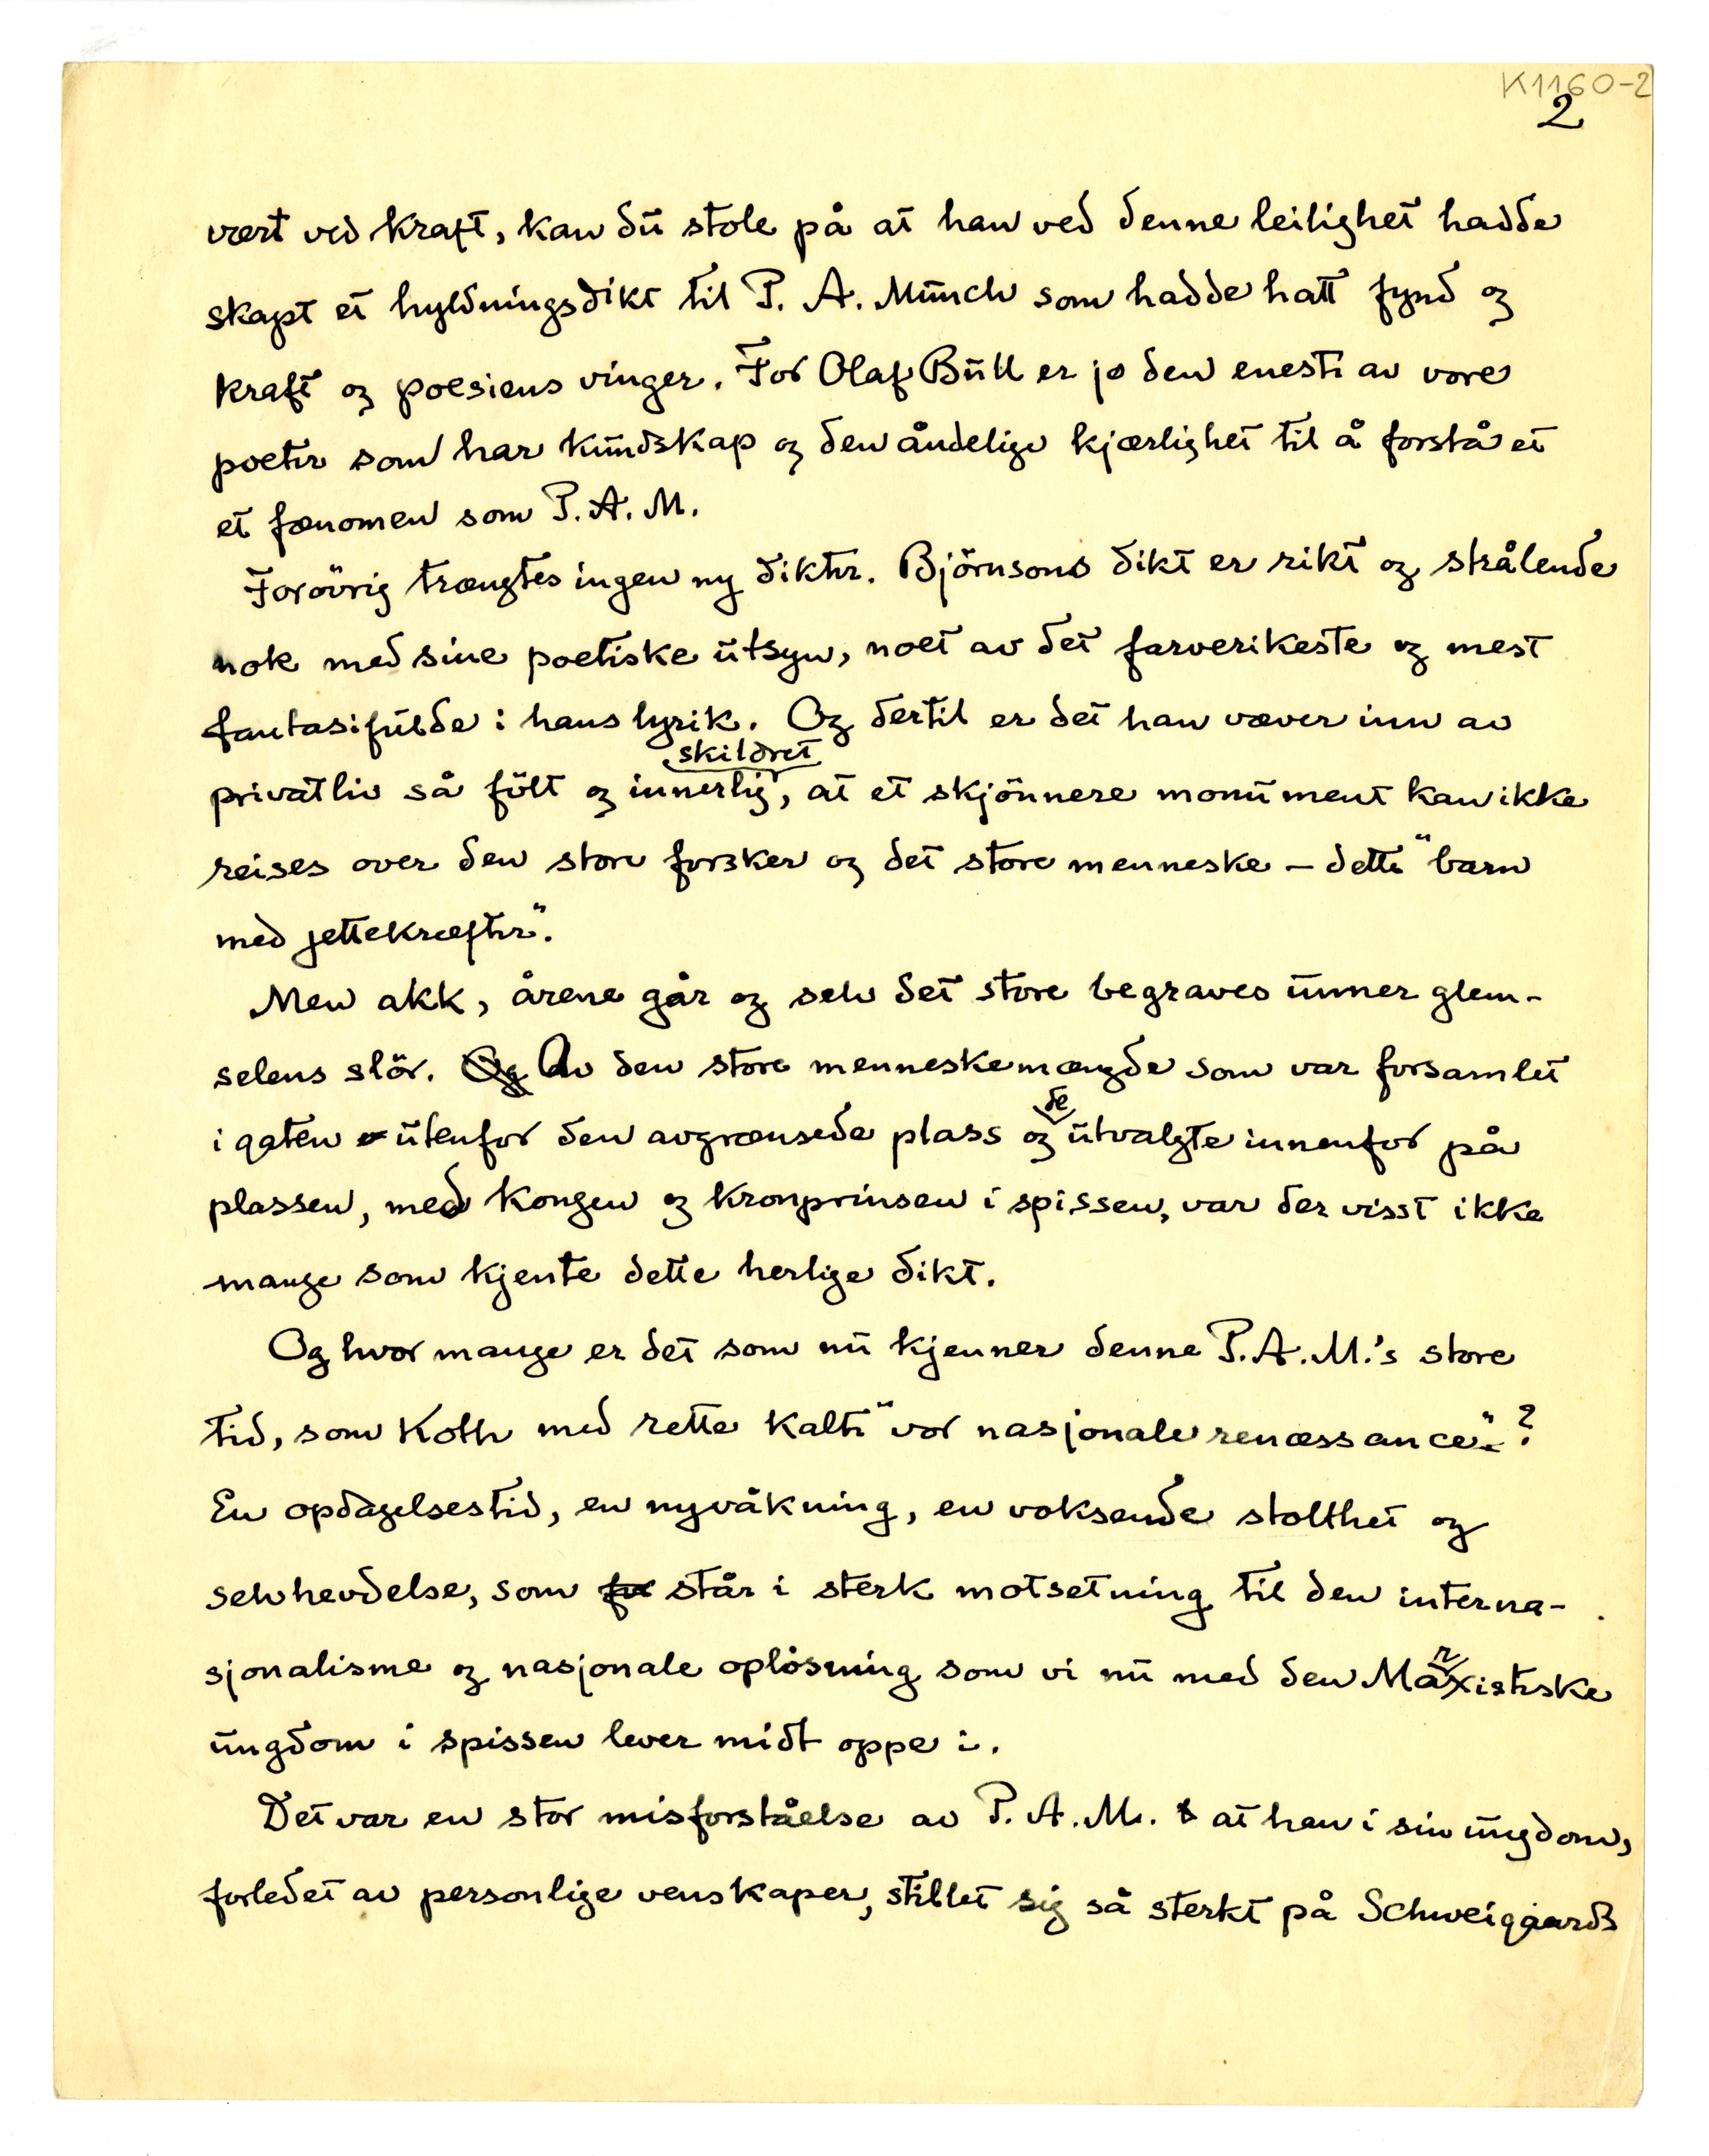 K1160-2
2
vært ved kraft, kan du stole på at han ved denne leilighet hadde
skapt et hyldningsdikt til P. A. Munch som hadde hatt fynd og
kraft og poesiens vinger. For Olaf Bull er jo den eneste av vore
poeter som har kundskap og den åndelige kjærlighet til å forstå et
et fænomen som P. A. M.
Forövrig trængtes ingen ny dikter. Björnsons dikt er rikt og strålende
nok med sine poetiske utsyn, noet av det farverikeste og mest
fantasifulde i hans lyrik. Og dertil er det han væver inn av
skildret
privatliv så fölt og innerlig, at et skjönnere monument kan ikke
reises over den store forsker og det store menneske – dette "barn
med jettekræfter".
Men akk, årene går og selv det store begraves unner glem-
selens slör. Og Av den store menneskemængde som var forsamlet
de
i gaten utenfor den avgrænsede plass og utvalgte innenfor på
plassen, med kongen og kronprinsen i spissen, var der visst ikke
mange som kjente dette herlige dikt.
Og hvor mange er det som nu kjenner denne P. A. M.'s store
tid, som Koth med rette kalte "vor nasjonale renæssance"?
En opdagelsestid, en nyvåkning, en voksende stolthet og
selvhevdelse, som for står i sterk motsetning til den interna-
sjonalisme og nasjonale oplösning som vi nu med den Marxistiske
ungdom i spissen lever midt oppe i.
Det var en stor misforståelse av P. A. M. at han i sin ungdom,
forledet av personlige venskaper, stillet sig så sterkt på Schweigaards